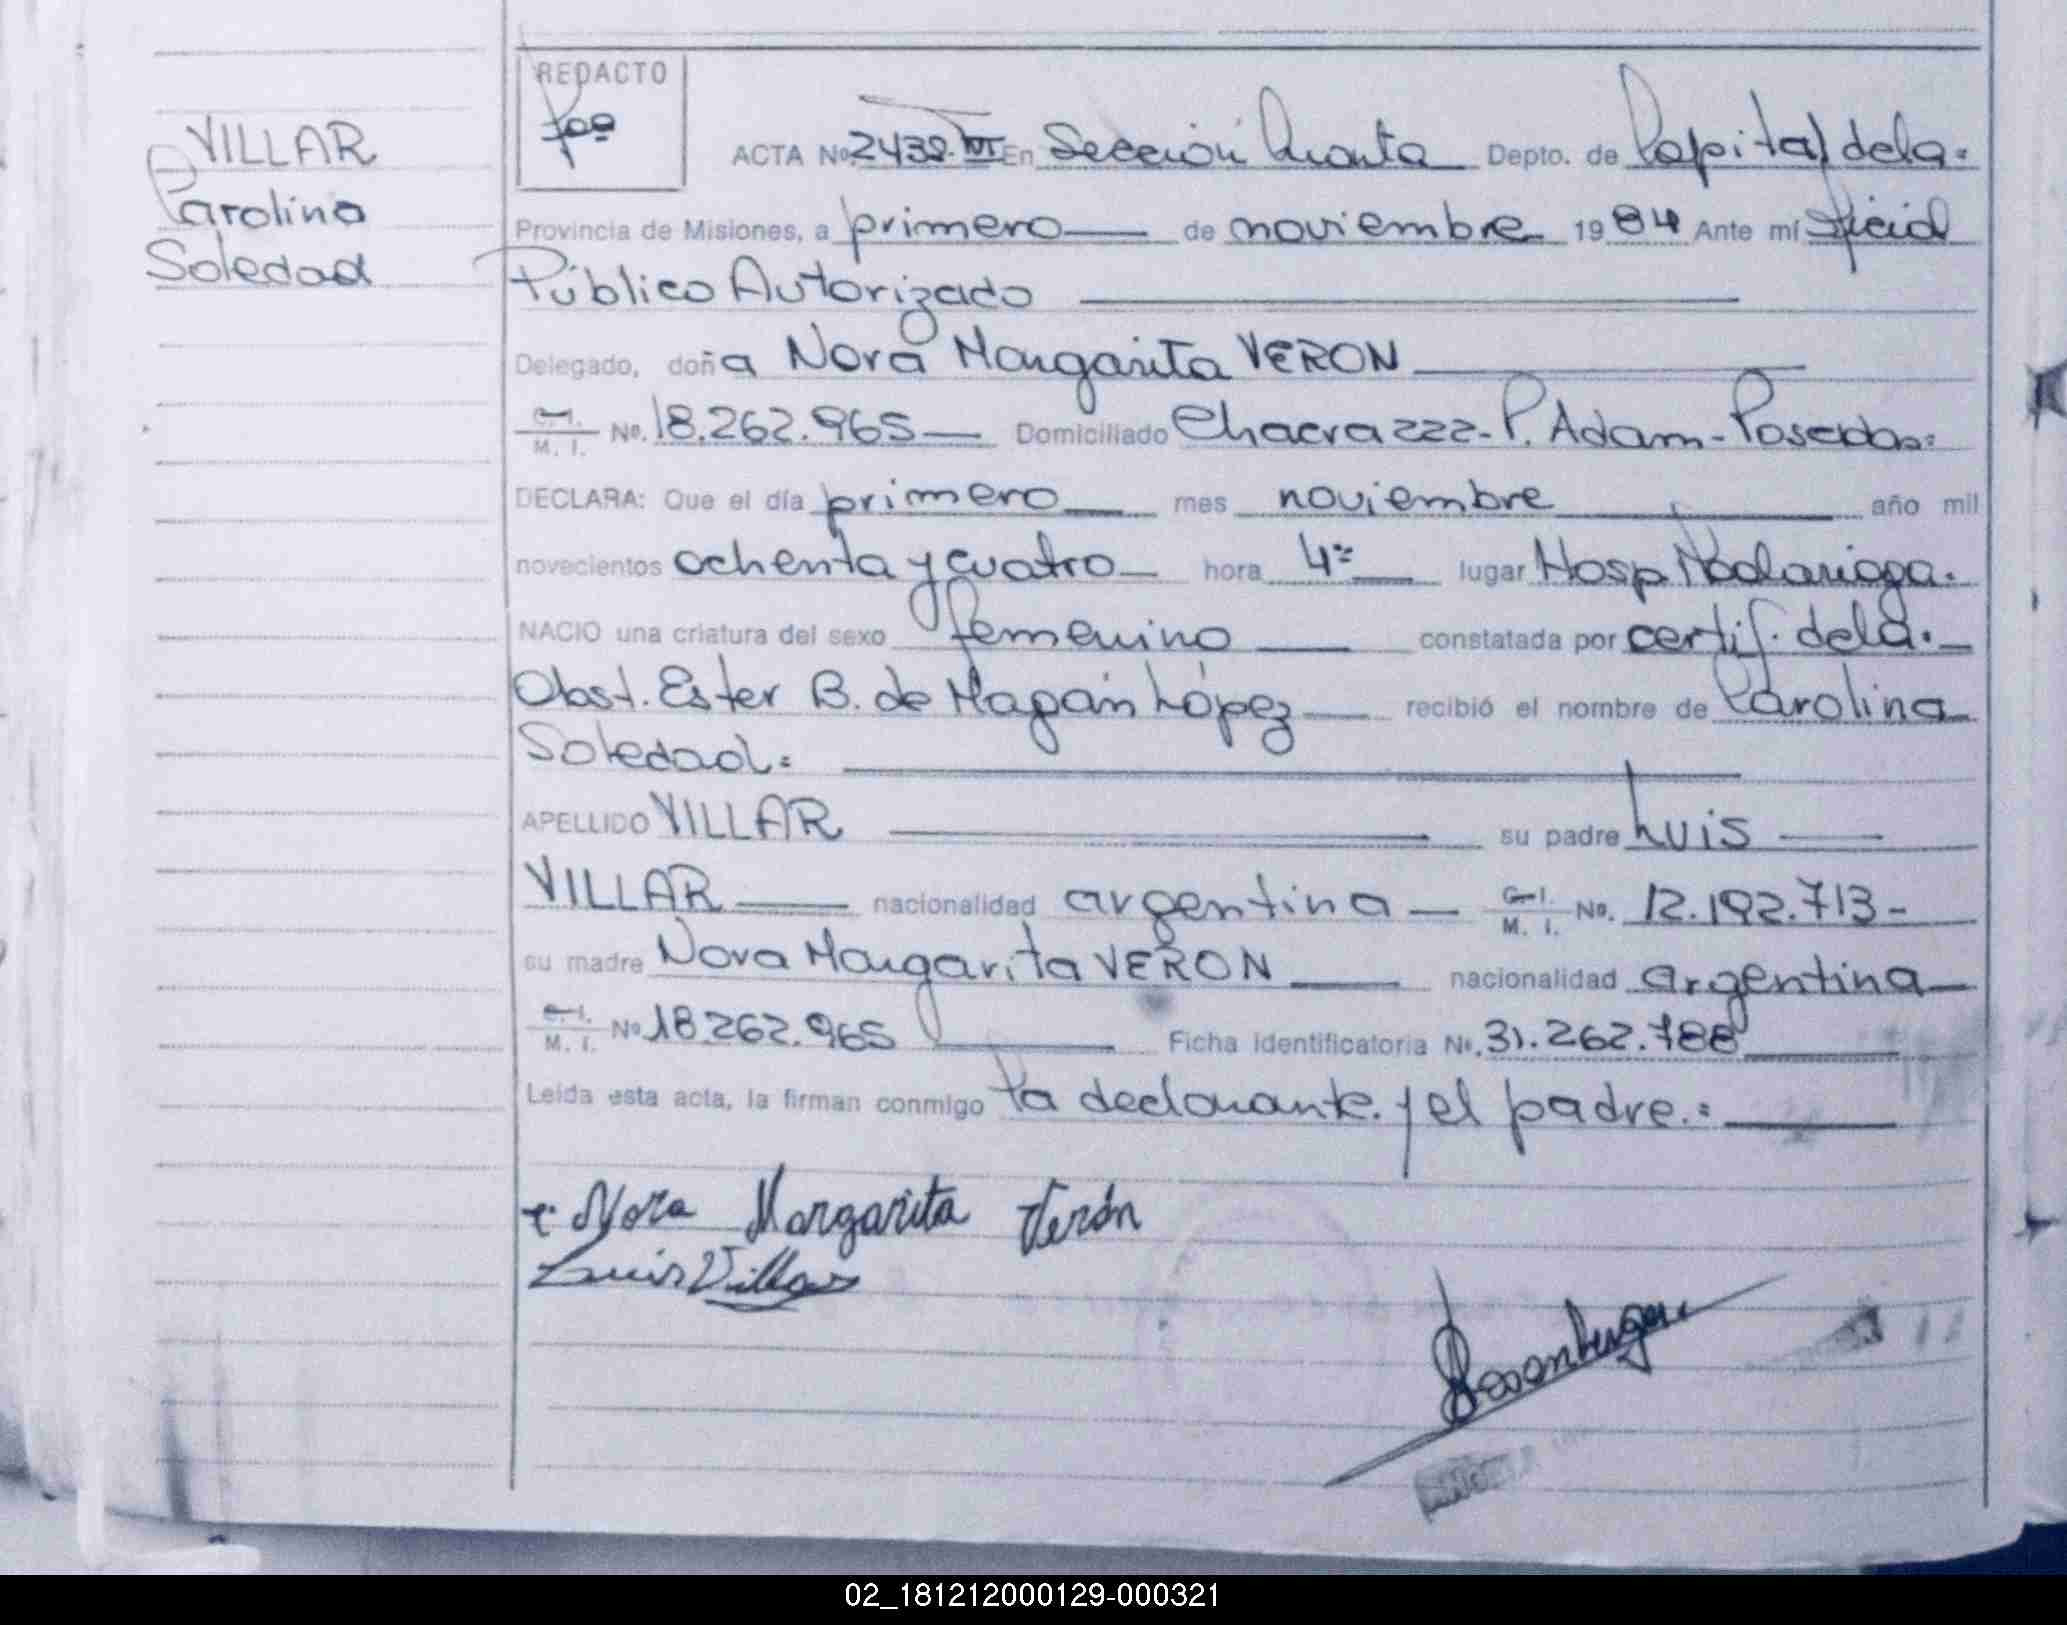 VILLAR
Carolina
Soledad
REDACTO
ACTA No 2439. VII En Sección Quinta Depto. de Capital de la.=
Provincia de Misiones, a primero de noviembre 1984 Ante mí Oficial
Público Autorizado
Delegado, doña Nora Margarita VERON
C. I.
M. I. No. 18.262.965 Domiciliado Chacra 222- P. Adam- Posadas=
DECLARA: Que el día primero mes noviembre año mil
novecientos ochenta y cuatro hora 4= lugar Hosp Madariaga.
NACIO una criatura del sexo femenino constatada por certif. de la.
Obst. Ester B. de Magán López recibió el nombre de Carolina
Soledad.=
APELLIDO VILLAR su padre Luis
VILLAR nacionalidad argentina C. I.
M. I. No. 12.192.713-
su madre Nora Margarita VERON nacionalidad argentina
C. I.
M. I. No 18.262.965 Ficha identificatoria No. 31.262.788
Leída esta acta, la firman conmigo la declarante. y el padre.=
Nora Margarita Verón
Luis Villar
02_181212000129-000321